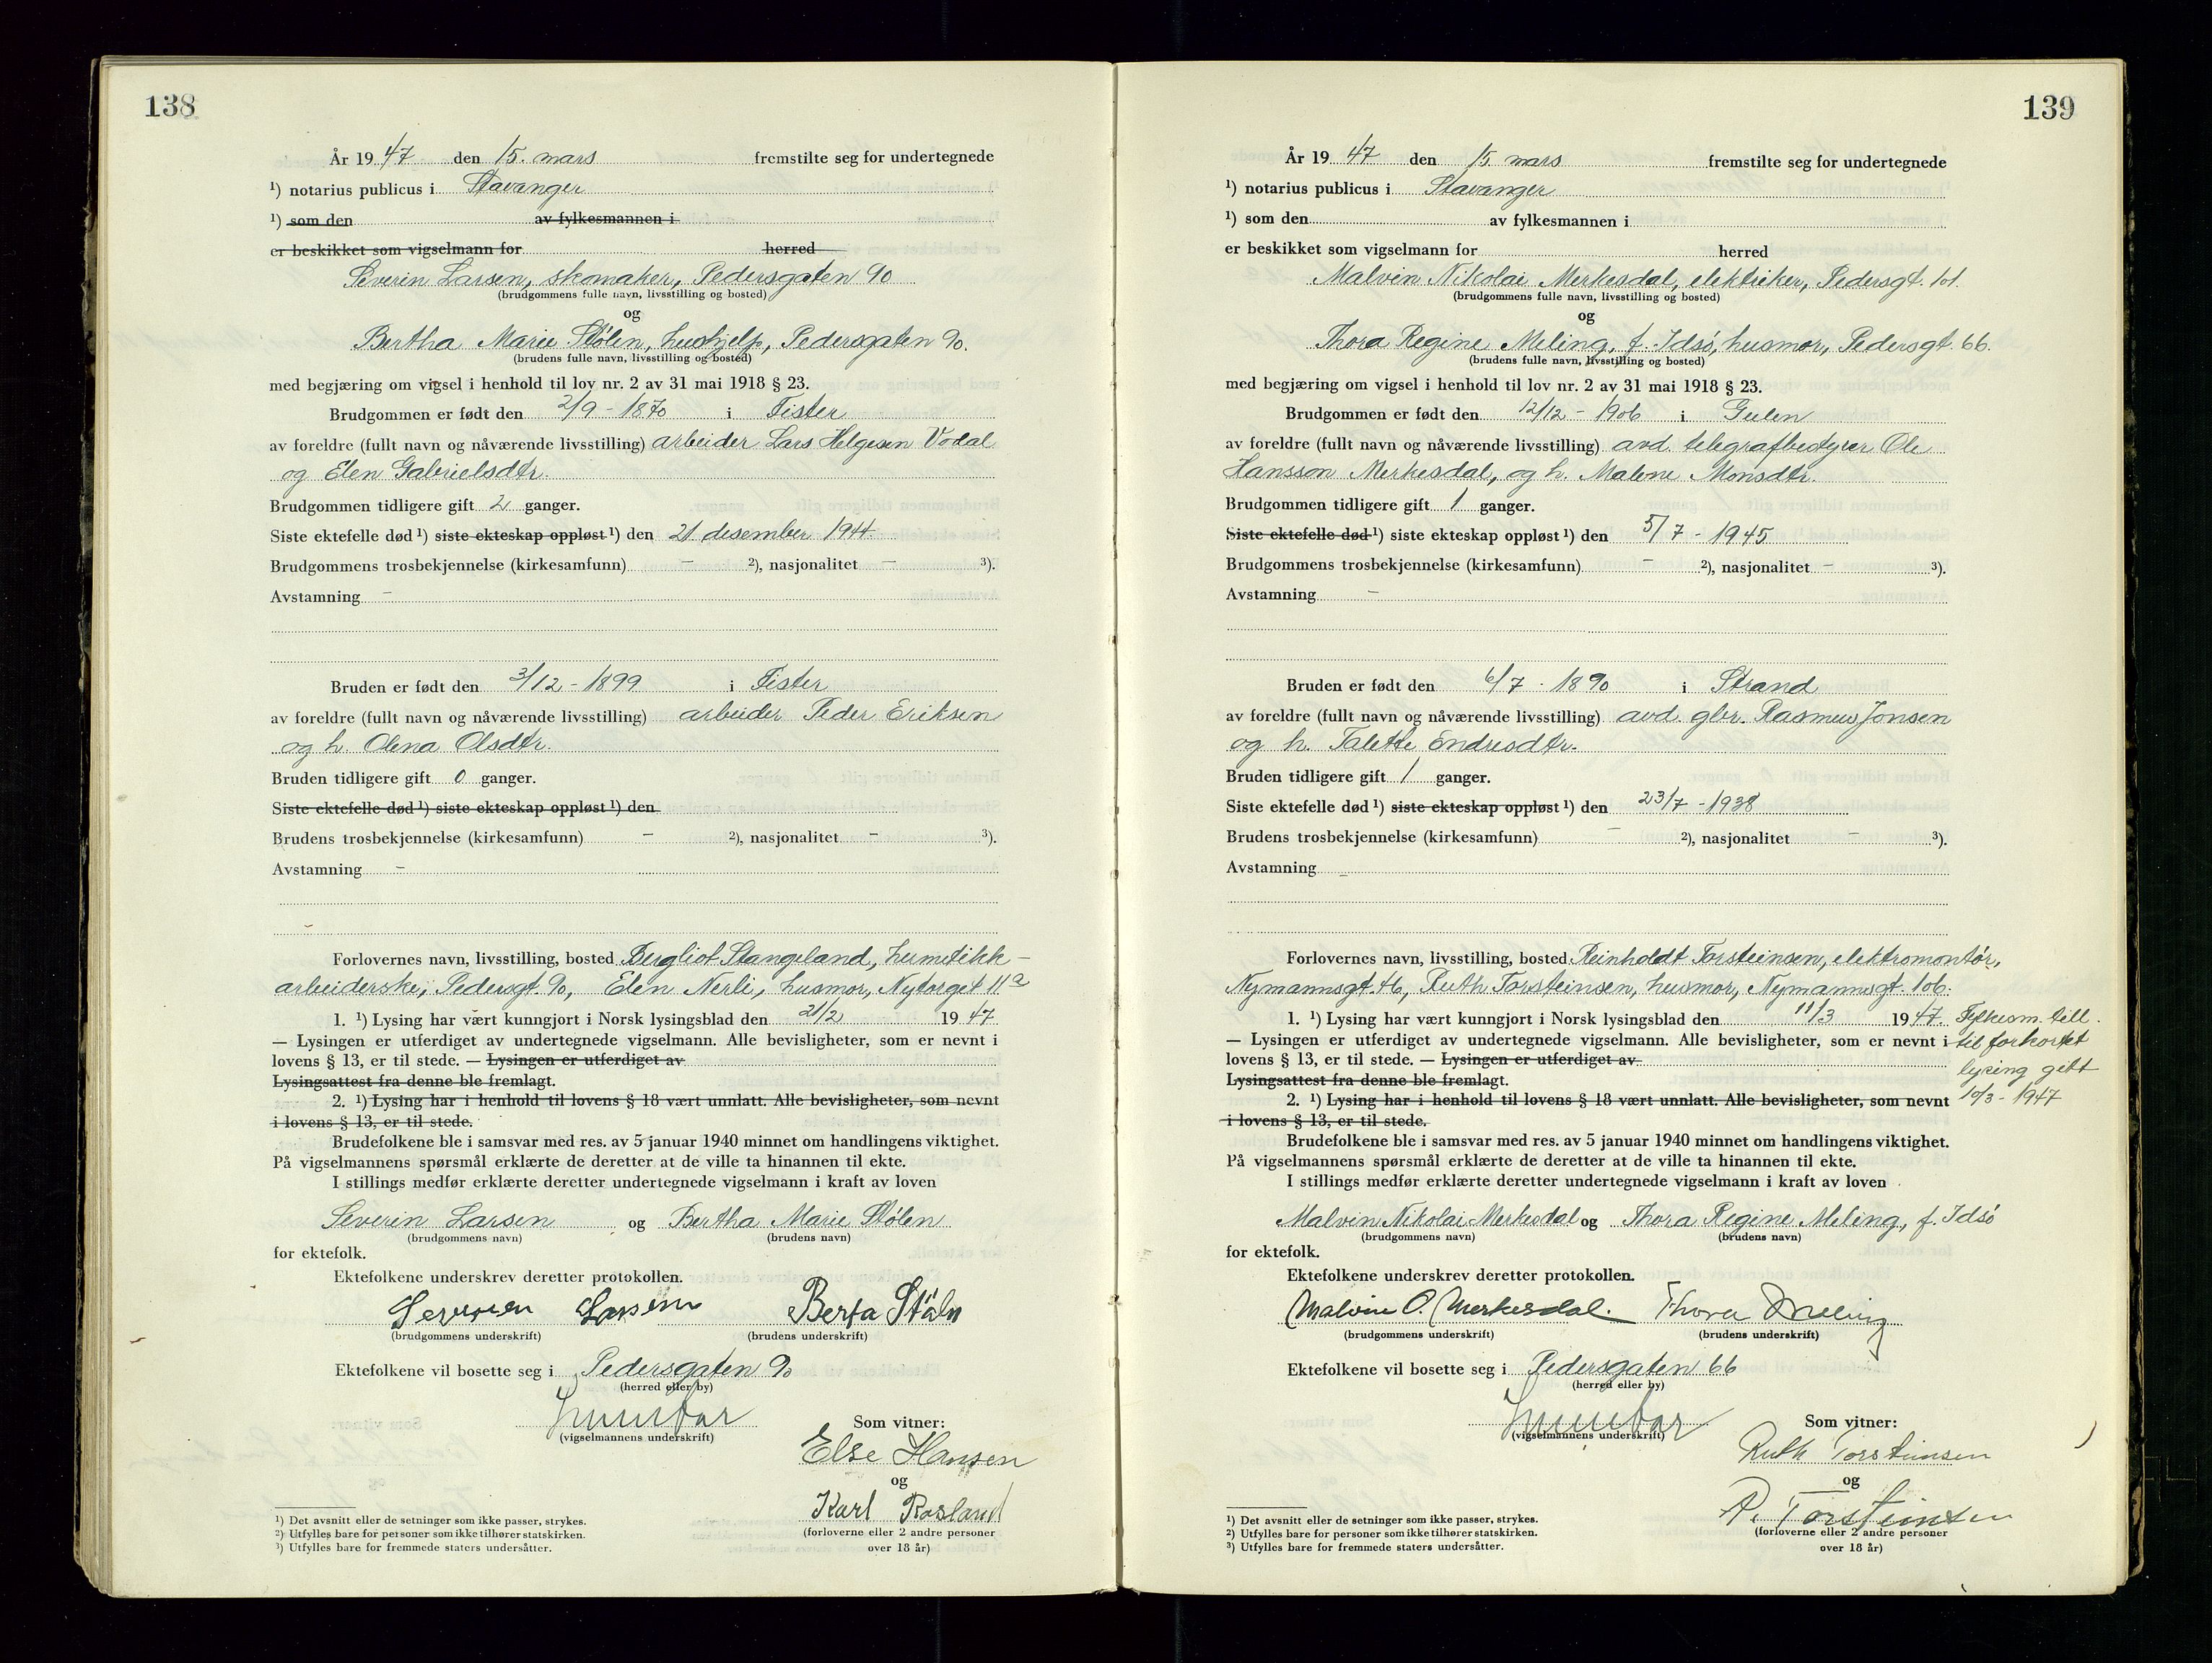 138
År 19 47 den 15. mars fremstilte seg for undertegnede
¹) notarius publicus i Stavanger
¹) som den av fylkesmannen i
er beskikket som vigselmann for herred
Severin Larsen, skomaker, Pedersgaten 90
(brudgommens fulle navn, livsstilling og bosted)
og
Bertha Marie Stølen, hushjelp, Pedersgaten 90.
(brudens fulle navn, livsstilling og bosted)
med begjæring om vigsel i henhold til lov nr. 2 av 31 mai 1918 § 23.
Brudgommen er født den 2/9 - 1870 i Fister
av foreldre (fullt navn og nåværende livsstilling) arbeider Lars Helgesen Vodal
og Elen Gabrielsdtr.
Brudgommen tidligere gift 2 ganger.
Siste ektefelle død ¹) siste ekteskap oppløst ¹) den 21 desember 1944.
Brudgommens trosbekjennelse (kirkesamfunn) – ²), nasjonalitet – ³).
Avstamning –
Bruden er født den 3/12 - 1899 i Fister
av foreldre (fullt navn og nåværende livsstilling) arbeider Peder Eriksen
og h. Olena Olsdtr.
Bruden tidligere gift 0 ganger.
Siste ektefelle død ¹) siste ekteskap oppløst ¹) den
Brudens trosbekjennelse (kirkesamfunn) – ²), nasjonalitet – ³).
Avstamning –
Forlovernes navn, livsstilling, bosted Bergliot Stangeland, hermetikk-
arbeiderske, Pedersgt. 90, Elen Nerli, husmor, Nytorget 11ª
1. ¹) Lysing har vært kunngjort i Norsk lysingsblad den 21/2 19 47
— Lysingen er utferdiget av undertegnede vigselmann. Alle bevisligheter, som er nevnt i
lovens § 13, er til stede. — Lysingen er utferdiget av
Lysingsattest fra denne ble fremlagt.
2. ¹) Lysing har i henhold til lovens § 18 vært unnlatt. Alle bevisligheter, som nevnt
i lovens § 13, er til stede.
Brudefolkene ble i samsvar med res. av 5 januar 1940 minnet om handlingens viktighet.
På vigselmannens spørsmål erklærte de deretter at de ville ta hinannen til ekte.
I stillings medfør erklærte deretter undertegnede vigselmann i kraft av loven
Severin Larsen og Bertha Marie Stølen
(brudgommens navn) (brudens navn)
for ektefolk.
Ektefolkene underskrev deretter protokollen.
Severien Larsen Berta Støln
(brudgommens underskrift) (brudens underskrift)
Ektefolkene vil bosette seg i Pedersgaten 90
(herred eller by)
(vigselmannens underskrift)
Som vitner:
Else Hansen
og
Karl Rosland
(forloverne eller 2 andre personer
over 18 år)
¹) Det avsnitt eller de setninger som ikke passer, strykes.
²) Utfylles bare for personer som ikke tilhører statskirken.
³) Utfylles bare for fremmede staters undersåtter.
139
År 19 47 den 15 mars fremstilte seg for undertegnede
¹) notarius publicus i Stavanger
¹) som den av fylkesmannen i
er beskikket som vigselmann for herred
Malvin Nikolai Merkesdal, elektriker, Pedersgt. 101.
(brudgommens fulle navn, livsstilling og bosted)
og
Thora Regine Meling, f. Idsø, husmor, Pedersgt. 66.
(brudens fulle navn, livsstilling og bosted)
med begjæring om vigsel i henhold til lov nr. 2 av 31 mai 1918 § 23.
Brudgommen er født den 12/12 - 1906 i Gulen
av foreldre (fullt navn og nåværende livsstilling) avd. telegrafbestyrer Ole
Hansson Merkesdal, og h. Malene Monsdtr.
Brudgommen tidligere gift 1 ganger.
Siste ektefelle død ¹) siste ekteskap oppløst ¹) den 5/7 - 1945
Brudgommens trosbekjennelse (kirkesamfunn) – ²), nasjonalitet – ³).
Avstamning –
Bruden er født den 6/7 - 1890 i Strand
av foreldre (fullt navn og nåværende livsstilling) avd. gbr. Rasmus Jonsen
og h. Talette Endresdtr.
Bruden tidligere gift 1 ganger.
Siste ektefelle død ¹) siste ekteskap oppløst ¹) den 23/7 - 1938
Brudens trosbekjennelse (kirkesamfunn) – ²), nasjonalitet – ³).
Avstamning –
Forlovernes navn, livsstilling, bosted Reinholdt Torsteinsen, elektromontør,
Nymannsgt. 46, Ruth Torsteinsen, husmor, Nymannsgt. 106.
1. ¹) Lysing har vært kunngjort i Norsk lysingsblad den 11/3 19 47. Fylkesm. till.
— Lysingen er utferdiget av undertegnede vigselmann. Alle bevisligheter, som er nevnt i til forkortet
lovens § 13, er til stede. — Lysingen er utferdiget av
Lysingsattest fra denne ble fremlagt. lysing gitt
2. ¹) Lysing har i henhold til lovens § 18 vært unnlatt. Alle bevisligheter, som nevnt 10/3 - 1947
i lovens § 13, er til stede.
Brudefolkene ble i samsvar med res. av 5 januar 1940 minnet om handlingens viktighet.
På vigselmannens spørsmål erklærte de deretter at de ville ta hinannen til ekte.
I stillings medfør erklærte deretter undertegnede vigselmann i kraft av loven
Malvin Nikolai Merkesdal og Thora Regine Meling, f. Idsø
(brudgommens navn) (brudens navn)
for ektefolk.
Ektefolkene underskrev deretter protokollen.
Malvin O. Merkesdal. Thora Meling
(brudgommens underskrift) (brudens underskrift)
Ektefolkene vil bosette seg i Pedersgaten 66
(herred eller by)
(vigselmannens underskrift)
Som vitner:
Ruth Torsteinsen
og
R. Torsteinsen
(forloverne eller 2 andre personer
over 18 år)
¹) Det avsnitt eller de setninger som ikke passer, strykes.
²) Utfylles bare for personer som ikke tilhører statskirken.
³) Utfylles bare for fremmede staters undersåtter.